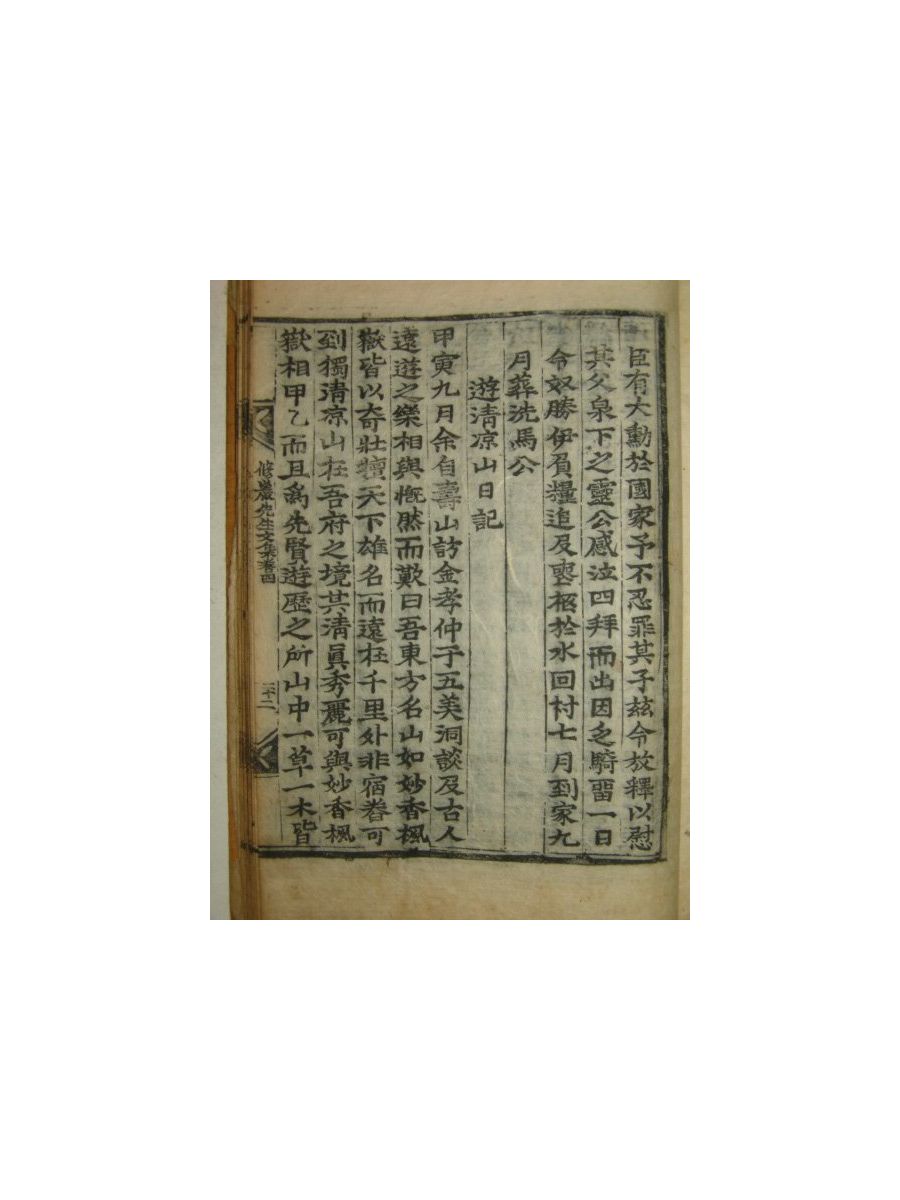 臣有大勳於國家予不忍罪其子玆令放釋以慰
其父泉下之靈公感泣四拜而出因之騎留一日
令奴勝伊負糧追及喪柩於水回村七月到家九
月葬洗馬公
遊淸凉山日記
甲寅九月余自壽山訪金孝仲于五美洞談及古人
遠遊之樂相與慨然而歎曰吾東方名山如妙香楓
嶽皆以奇壯擅天下雄名而遠在千里外非宿舂可
到獨淸凉山在吾府之境其淸眞秀麗可與妙香楓
嶽相甲乙而且爲先賢遊歷之所山中一草一木皆
修巖先生文集卷四